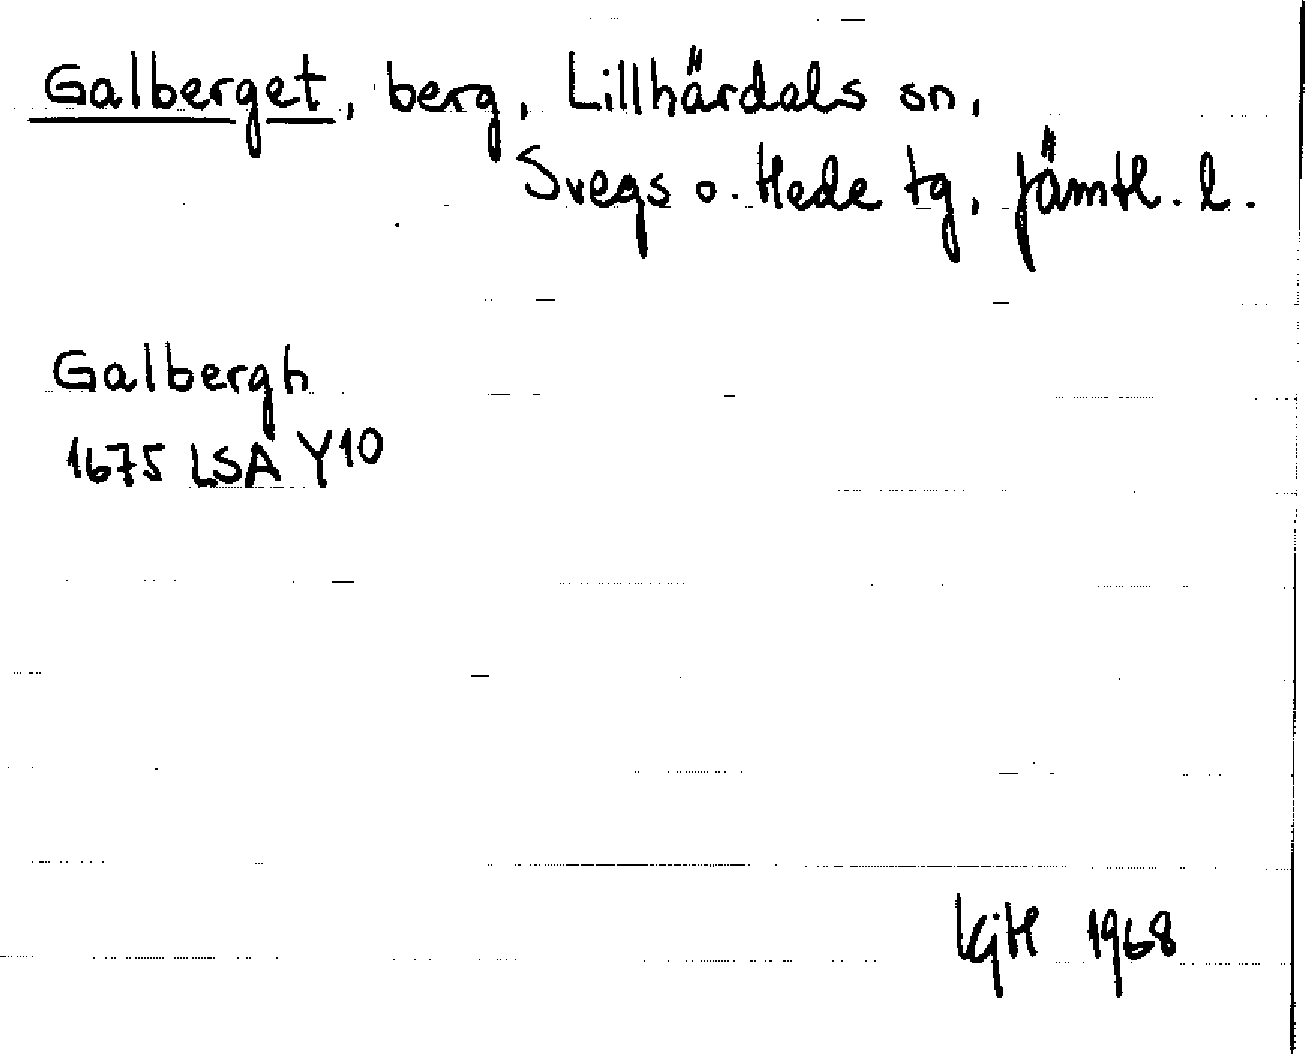 Galberget, berg, Lillhärdals sn,
Svegs o. Hede tg, Jämtl. l.
Galbergh
1675 LSA Y10
KjH 1968